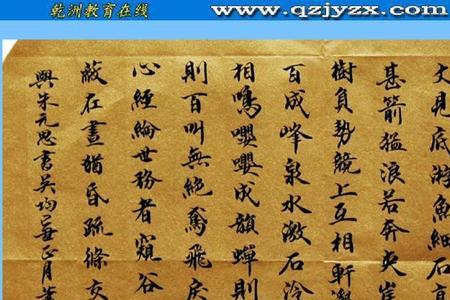 乾洲教育在线
www.qzjyzx.com
丈見底游魚細石直
甚箭猛浪若奔夾岸
樹負勢競上互相軒
百成峰泉水激石泠
相鳴嚶嚶成韻蟬則
則百叫無絕鳶飛戾
心經綸世務者窺谷
蔽在晝猶昏疏條交
與朱元思書吳均正月